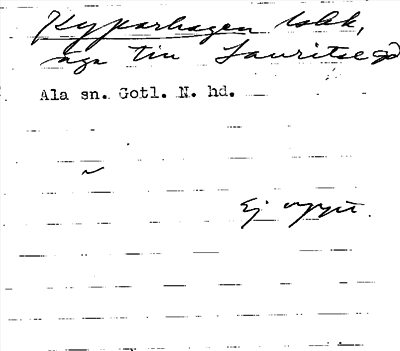 Kyparhagen lokk,
äga till Lauritse gd
Ala sn. Gotl. N. hd.
Ej uppt.